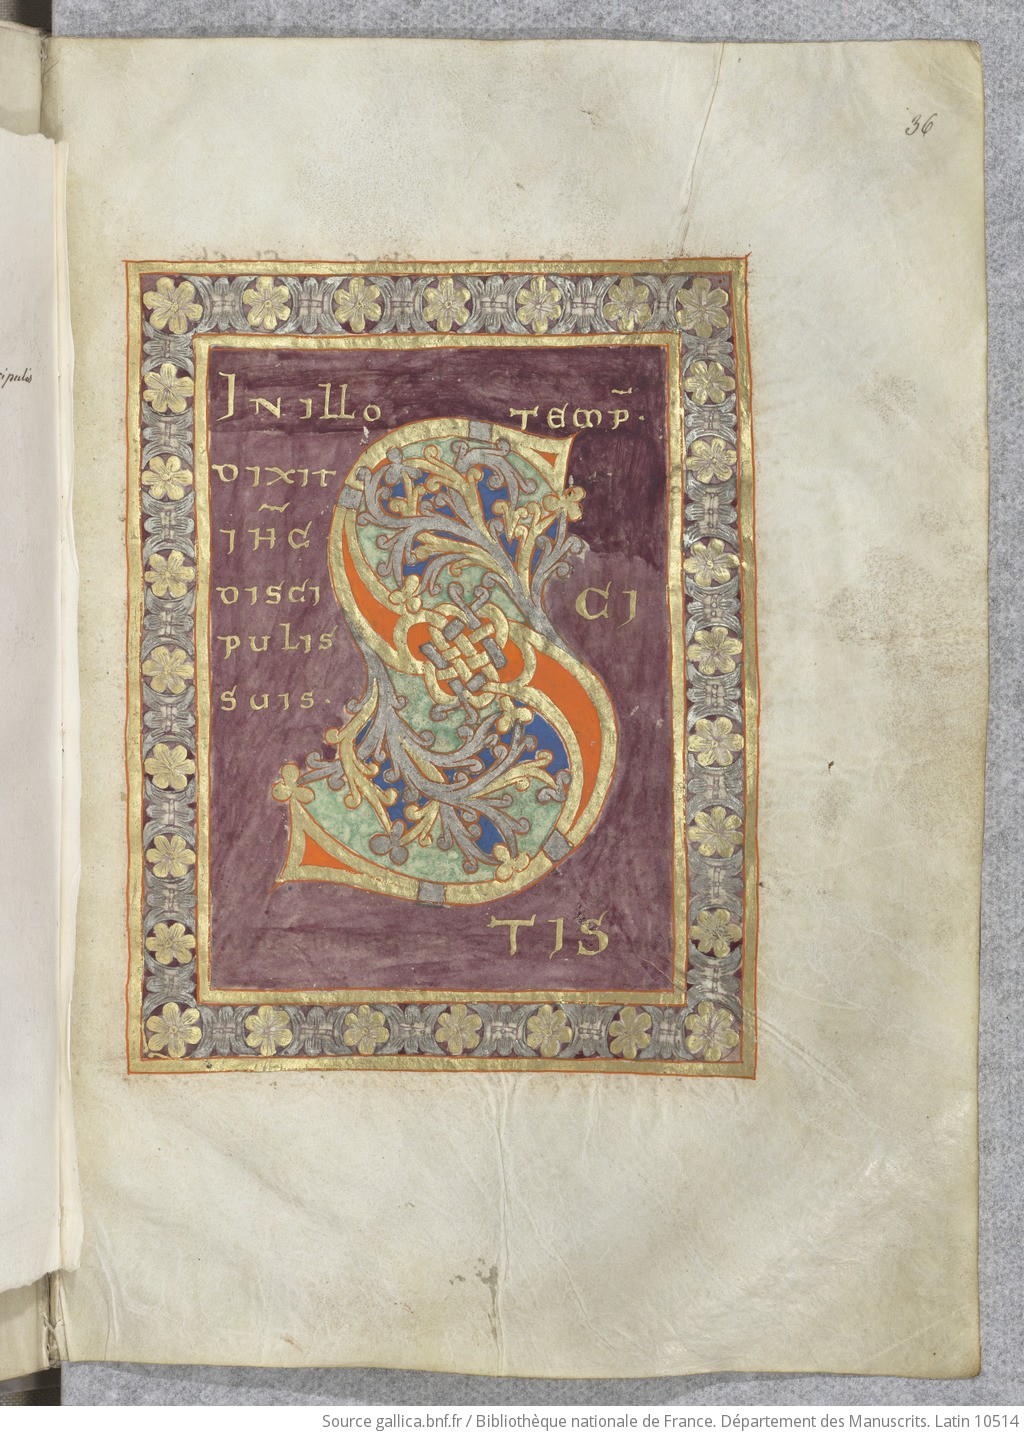 36
cipulis
In illo temp̃.
dixit
ih̃c
disci
pulis
suis.
S
CI
TIS
Source gallica.bnf.fr / Bibliothèque nationale de France. Département des Manuscrits. Latin 10514